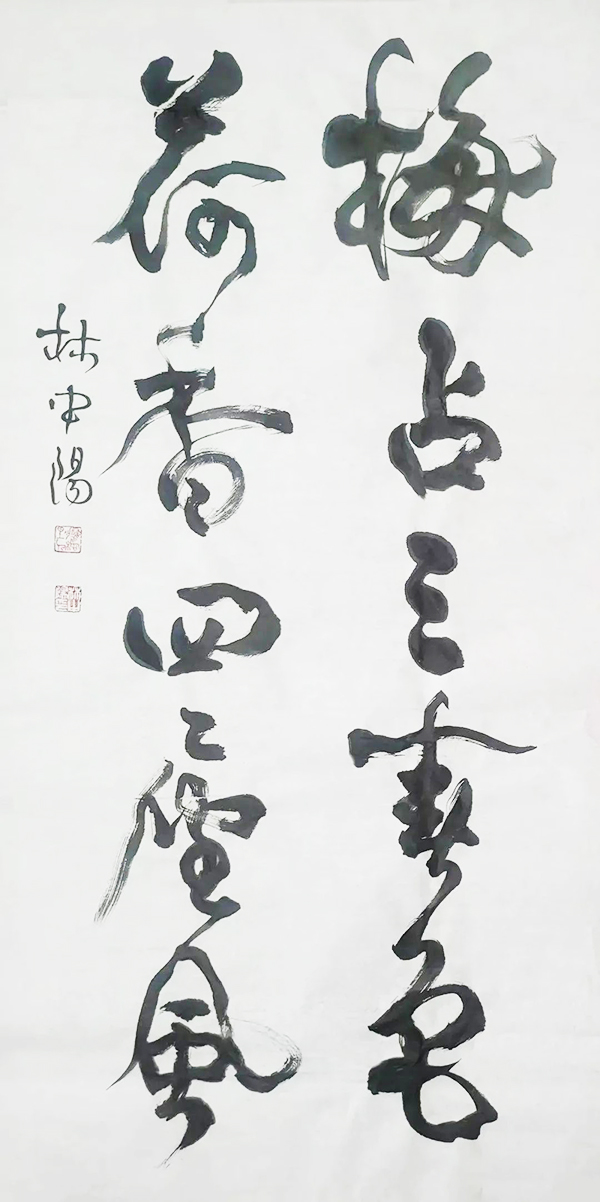 梅占三春色
荷香四座風
林中陽